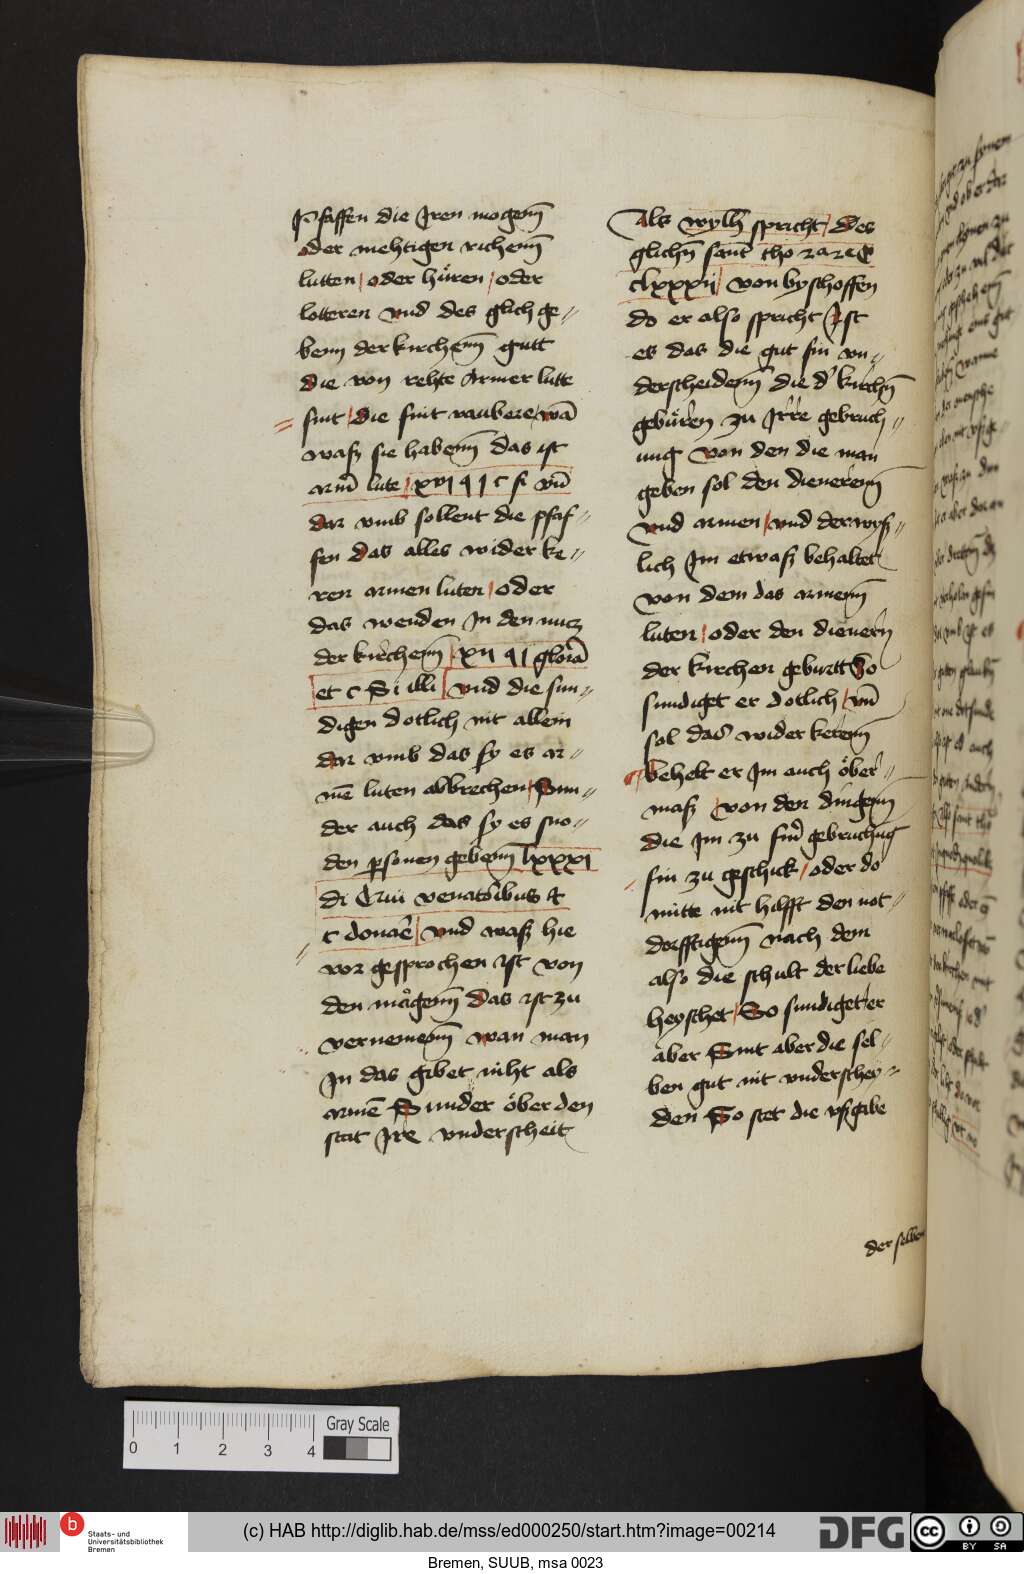 Pfaffen die Iren mogenn̄
oder mehtigen richenn̄
lutten / oder hůren / oder
lotteren vnd des glich ge-//
benn der kirchenn̄ gutt
die von rehte Armer lutte
sint / die sint raubere / wā
wasz sie habenn̄ das ist
arm̄ lute / xvi q i c si vn̄
dar vmb sollent die pfaf-//
fen das alles wider ke-//
ren armen luten / oder
das wenden In den nucz
der kirchenn̄ / xii q i gloria
et c Si illi / vnd die sun-//
digen dotlich nit allein
dar vmb das sy es ar-//
mē luten abbrechen / Sun-//
der auch das sy es sno-//
den personen gebenn̄ lxxxi
di Qui venatoribus et
c donare / vnd wasz hie
vor gesprochen ist von
den mögenn̄ das ist zu
vernemenn̄ wan man
In das gibet niht als
armē Sunder öber den
stat Ire vnderscheit
Als wylh̄ spricht / des
glichn̄ sant tho 2a 2e q̄
clxxxii / von byschoffen
do er also spricht Ist
es das die gut sin vn-//
derscheidenn̄ die d' kirchn̄
gebüren zu Irre gebruch-//
ung von den die man
geben sol den dienerenn̄
vnd armen / vnd der wysz-//
lich Im etwasz behaltet
von dem das armenn̄
luten / oder den dienern
der kirchen geburtt So
sundiget er dotlich / vn̄
sol das wider kerenn̄
behelt er Im auch öber-//
masz / von den dingenn̄
die Im zu sinr gebruchung
sin zu geschick / oder do
mitte nit hilfft den not-//
dorfftigenn̄ nach dem
also die schult der liebe
heyschet / So sundiget er
aber Sint aber die sel-//
ben gut nit vnderschey-//
den So stet die vszgabe
der selben
0 1 2 3 4
Gray Scale
Staats- und
Universitätsbibliothek
Bremen
(c) HAB http://diglib.hab.de/mss/ed000250/start.htm?image=00214
DFG
BY SA
Bremen, SUUB, msa 0023